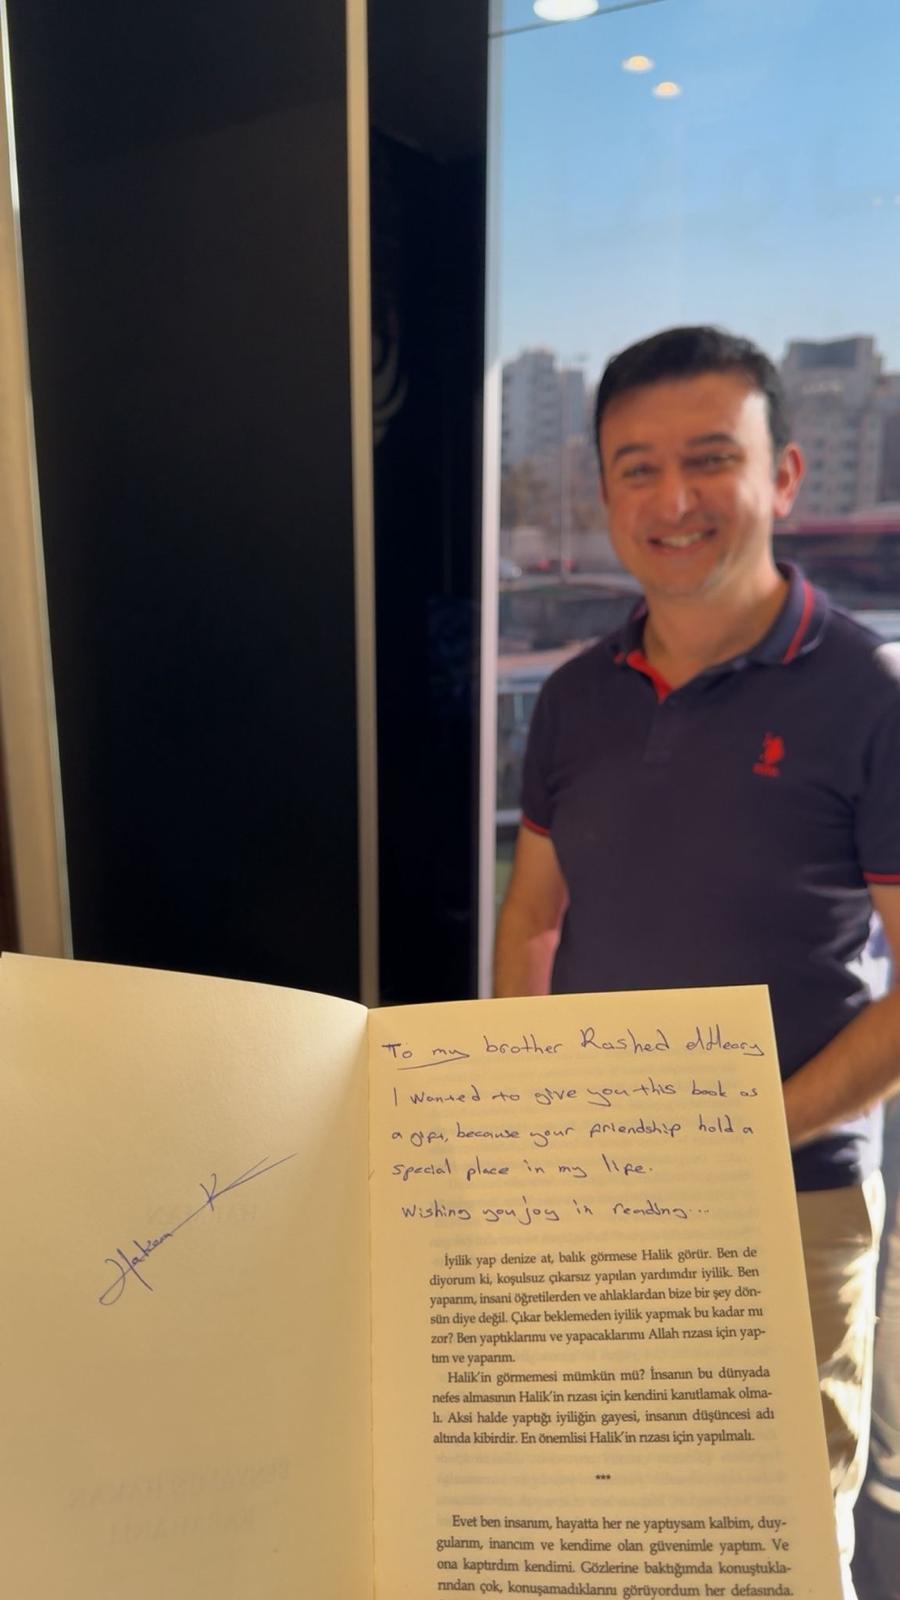 Hakan K
To my brother Rashed
I wanted to give you this book as
a gift, because your friendship hold a
special place in my life.
Wishing you joy in reading...
İyilik yap denize at, balık görmese Halik görür. Ben de
diyorum ki, koşulsuz çıkarsız yapılan yardımdır iyilik. Ben
yaparım, insani öğretilerden ve ahlaklardan bize bir şey dön-
sün diye değil. Çıkar beklemeden iyilik yapmak bu kadar mı
zor? Ben yaptıklarımı ve yapacaklarımı Allah rızası için yap-
tım ve yaparım.
Halik'in görmemesi mümkün mü? İnsanın bu dünyada
nefes almasının Halik'in rızası için kendini kanıtlamak olma-
lı. Aksi halde yaptığı iyiliğin gayesi, insanın düşüncesi adı
altında kibirdir. En önemlisi Halik'in rızası için yapılmalı.
***
Evet ben insanım, hayatta her ne yaptıysam kalbim, duy-
gularım, inancım ve kendime olan güvenimle yaptım. Ve
ona kaptırdım kendimi. Gözlerine baktığımda konuştukla-
rından çok, konuşamadıklarını görüyordum her defasında.